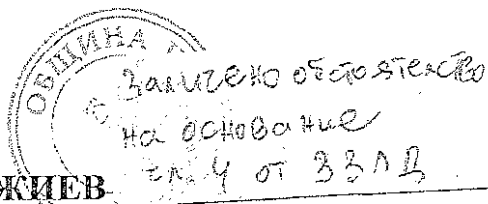 ОБЩИНА
Заличено обстоятелство
на основание
чл. 4 от ЗЗЛД
ЖИЕВ